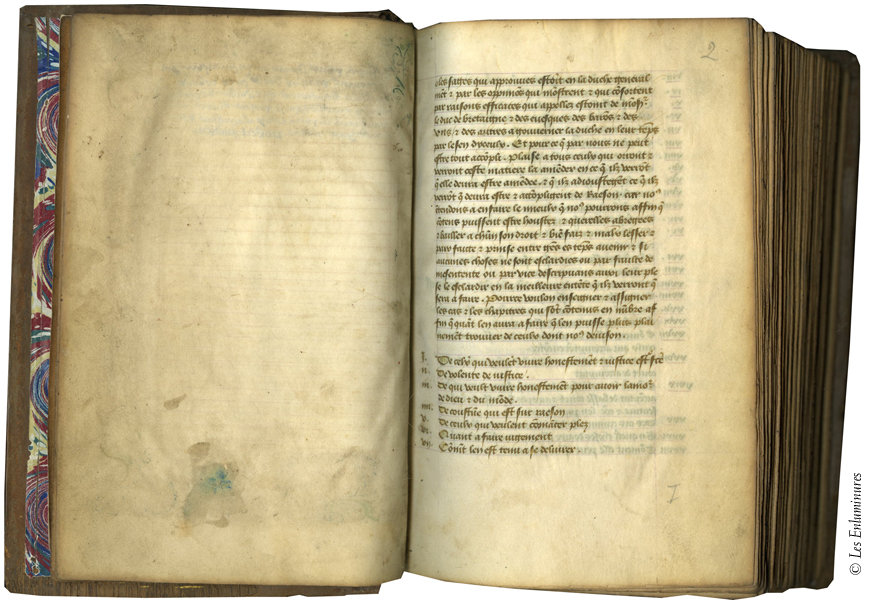 2
les sages qui approuves estoit en la duche general
mẽt ⁊ par les oppinions qui mõstrent ⁊ qui cõfortent
par raisons efficaces qui appellez estoint de mõsʳ
le duc de bretaigne ⁊ des evesques des barõs ⁊ des
uns ⁊ des autres a gouverner la duche en leur tẽps
par le sen dyceulx. Et pour ce q̃ par nous ne peut
estre tout acõpli. Plaise a tous ceulx qui oiront ⁊
verront ceste matiere la amẽder en ce q̃ ilz verrõt
q̃ elle devra estre amẽdee ⁊ q̃ ilz adioustegẽt ce q̃ ilz
verrõt q̃ devra estre ⁊ acõpligent de Raeson. car noˢ
ẽtendons a en faire le mieulx q̃ noˢ pourrons affin q̃
cõtens puissent estre houstez ⁊ querelles abregees
⁊ bailler a chũn son droit ⁊ biẽ faiz ⁊ malx lesser ⁊
paix faicte ⁊ prinse entre gẽs es tẽps avenir ⁊ si
aucunes choses ne sont esclardies ou par faulte de
mesentente ou par vice descripvans auxi leur ple
se le esclardir en la meilleure entẽte q̃ ilz verront q̃
sera a faire. Pourre voulon enseigner ⁊ assigner
les cas ⁊ les chapitres qui sõt cõtenus en nũbre af
fin q̃ quãt len aura a faire q̃ len puisse plus plai
nemẽt trouver de ceulx dont noˢ devison.
I. De celx̃ qui veulẽt vivre honestemẽt ⁊ justice est scẽ
ii. De volente de justice.
iii. De qui veult vivre honestemẽt pour avoir lamoʳ
de dieu ⁊ du mõde.
iiii. De coustũe qui est sur raeson
v. De ceulx qui veulent cõmãcer plez
vi. Quant a faire jugement
vii. Cõmẽt len est tenu a se delivrer
I
© Les Enluminures